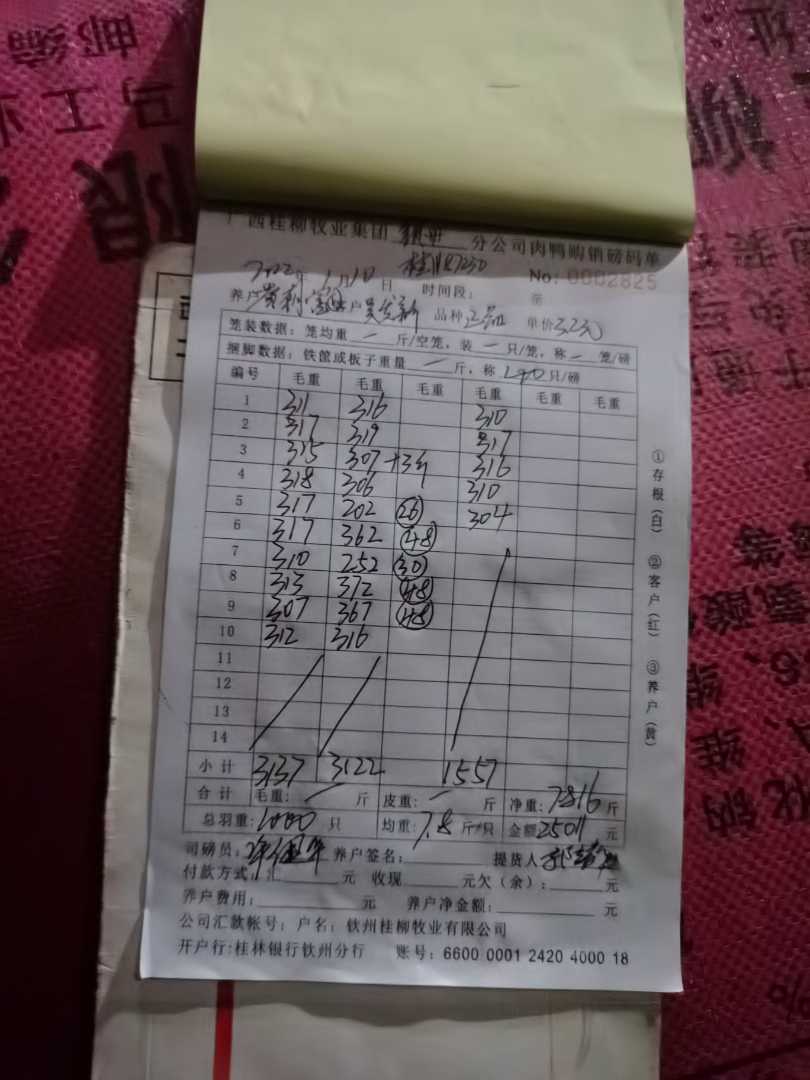 广西桂柳牧业集团 分公司肉鸭购销磅码单
2022年1月10日 时间段： 至 No: 0002825
养户 品种 正品 单价3.2元
笼装数据：笼均重 一 斤/空笼，装 一 只/笼，称 一 笼/磅
捆脚数据：铁筐或板子重量 一 斤，称 只/磅
编号 毛重 毛重 毛重 毛重 毛重 毛重
1 311 316 310
2 317 319 317
3 315 307 +3 316
4 318 306 310
5 317 202 26 304
6 317 362 48
7 310 252 30
8 313 372 48
9 307 367 48
10 312 316
11
12
13
14
小计 3137 3122 1557
合计 毛重：一 斤 皮重：一 斤 净重：7816 斤
总羽重：1000 只 均重：7.8 斤/只 金额 25011 元
司磅员： 养户签名： 提货人
付款方式：汇 元 收现 元欠（余）： 元
养户费用： 元 养户净金额： 元
公司汇款帐号：户名：钦州桂柳牧业有限公司
开户行：桂林银行钦州分行 账号：6600 0001 2420 4000 18
①存根（白） ②客户（红） ③养户（黄）
邮编
限